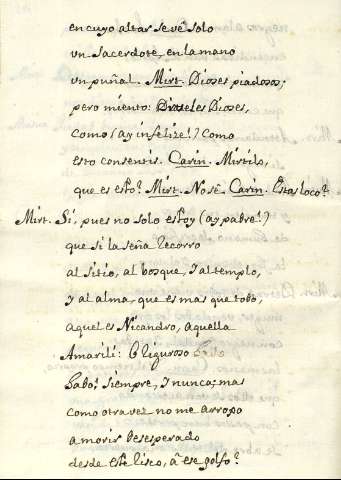 en cuyo altar se vé solo
vn Sacerdote, en la mano
vn puñal. Mirt. Dioses piadosos;
pero miento: Dioses,
como (ay infelize!) Como
esto consentis. Carin. Mirtilo,
que es esto? Mirt. No sé. Carin. Estas loco?
Mirt. Si, pues no solo estoy (ay pabre!)
que si la seña recorro
al sitio, al bosque, y al templo,
y al alma, que es mas que todo,
aquel es Nicandro, aquella
Amarili: O riguroso
hado! siempre, y nunca; mas
como otra vez no me arropo
a morir desesperado
desde este risco, á ese golfo?